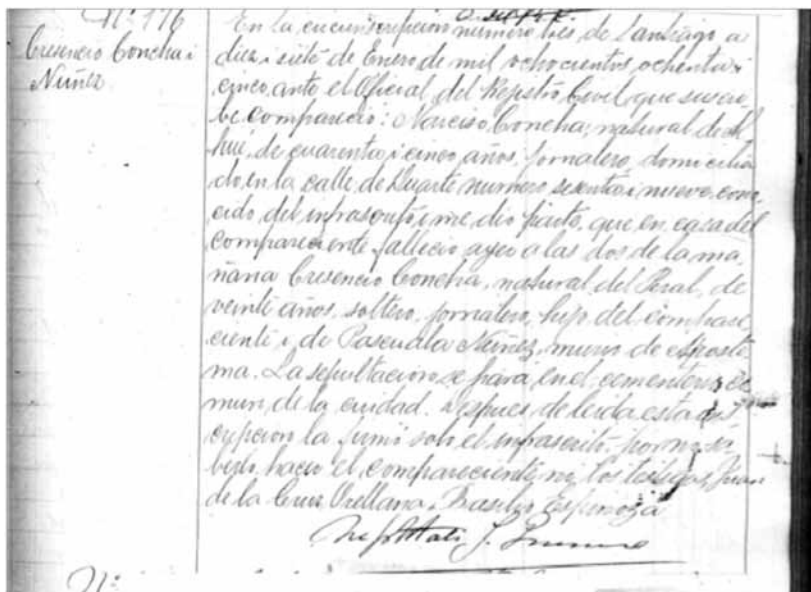 Nº 176
Cresencio Concha i
Nuñez
En la circunscripcion numero tres de Santiago a
diez i siete de Enero de mil ochocientos ochenta i
cinco, ante el Oficial del Rejistro Civil que suscri
be compareció: Narciso Concha, natural de Al
hué, de cuarenta i cinco años, jornalero, domicilia
do en la calle de Duarte numero sesenta i nueve, cono
cido del infrascrito, i me dió parte, que en casa del
compareciente, falleció ayer a las dos de la ma
ñana Cresencio Concha, natural del Peral, de
veinte años, soltero, jornalero, hijo del compare
ciente i de Pascuala Nuñez, murió de aposte
ma. La sepultacion se hará en el cementerio co
mun de la ciudad. Despues de leida esta
cripcion la firmó solo el infrascrito por no sa
berlo hacer el compareciente ni los testigos, Juan
de la Cruz Orellana i Basilio Espinoza
Nº